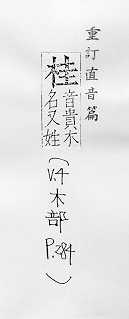 重訂直音篇
桂
音貴木
名又姓
(V.4 木部 P.284)